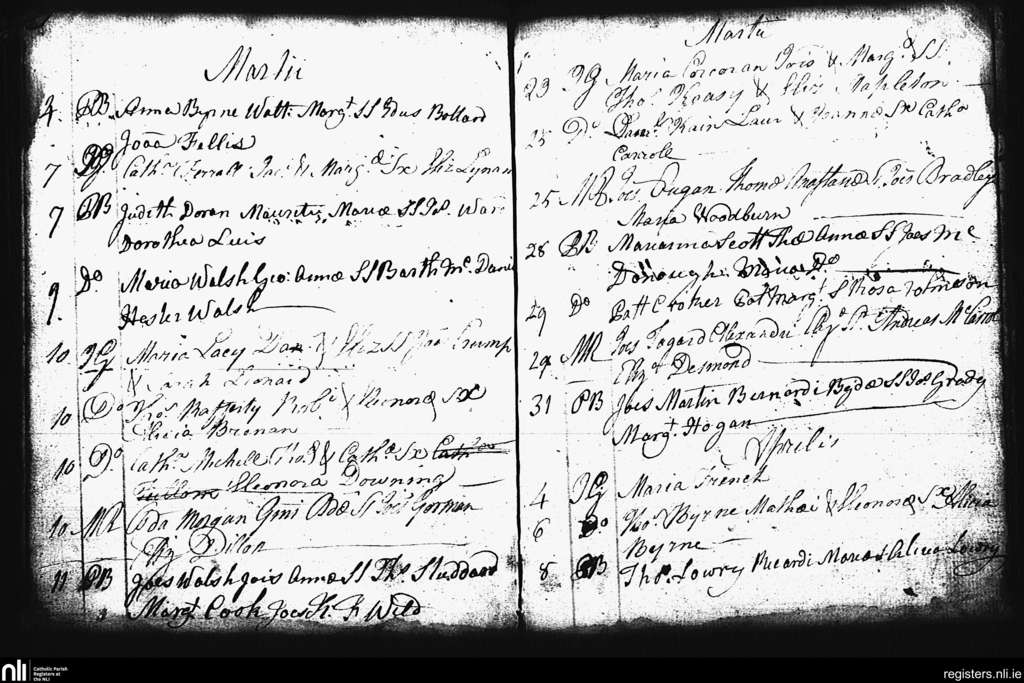 Martii
4. PB Anna Byrne Watt: Margt. SS Edus Bollard
Joāa Fellis
7 Cath. Ferrall Jac & Marg. Sx Eliz Lynam
7 PB Judith Doran Mauritij Mariæ SS Jos. Ward
Dorothea Luis
9. Do Maria Walsh Geo: Annæ SS Barth Mc. Daniel
Hester Walsh
10 Maria Lacy Dan & Eliz SS Crump
& Sarah Leonard
10 Do Thos Rafferty Robt & Eleonoræ Sx
Elicia Brenan
10 Do Cathr. Michell Tho. & Cathæ Sx
Eleonora Downing
10 MR Oda Morgan Odæ SS Joes Gorman
Eliz Dillon
11 PB Joes Walsh Jois Annæ SS Ths. Studdard
Margt. Cook Joes F Wild
Martii
23 Maria Corcoran Jois & Marga SS.
Thos. Keasy & Eliz Mapleton
25 Do Kain Laur & Joannæ Sx Catha
Carroll
25 MR. Joes Dugan Thomæ Joes Bradley
Maria Woodburn
28 PB Marianna Scott Thæ Annæ SS Joes Mc
Donough Do
29 Do Patt Crother Patt Margt. S Rosa Johnson
29 MR Joes Fogard Alexandri Andreas
Eliz Desmond
31 PB Joes Martin Bernardi Bydæ SS Jos Grady
Margt. Hogan
Aprilis
4 Maria French
6 Do Thos. Byrne Mathai & Eleonoræ Sx Maria
Byrne
8 PB Thos. Lowry Ricardi Mariæ S Alicia Lowry
nli
Catholic Parish
Registers at
the NLI
registers.nli.ie